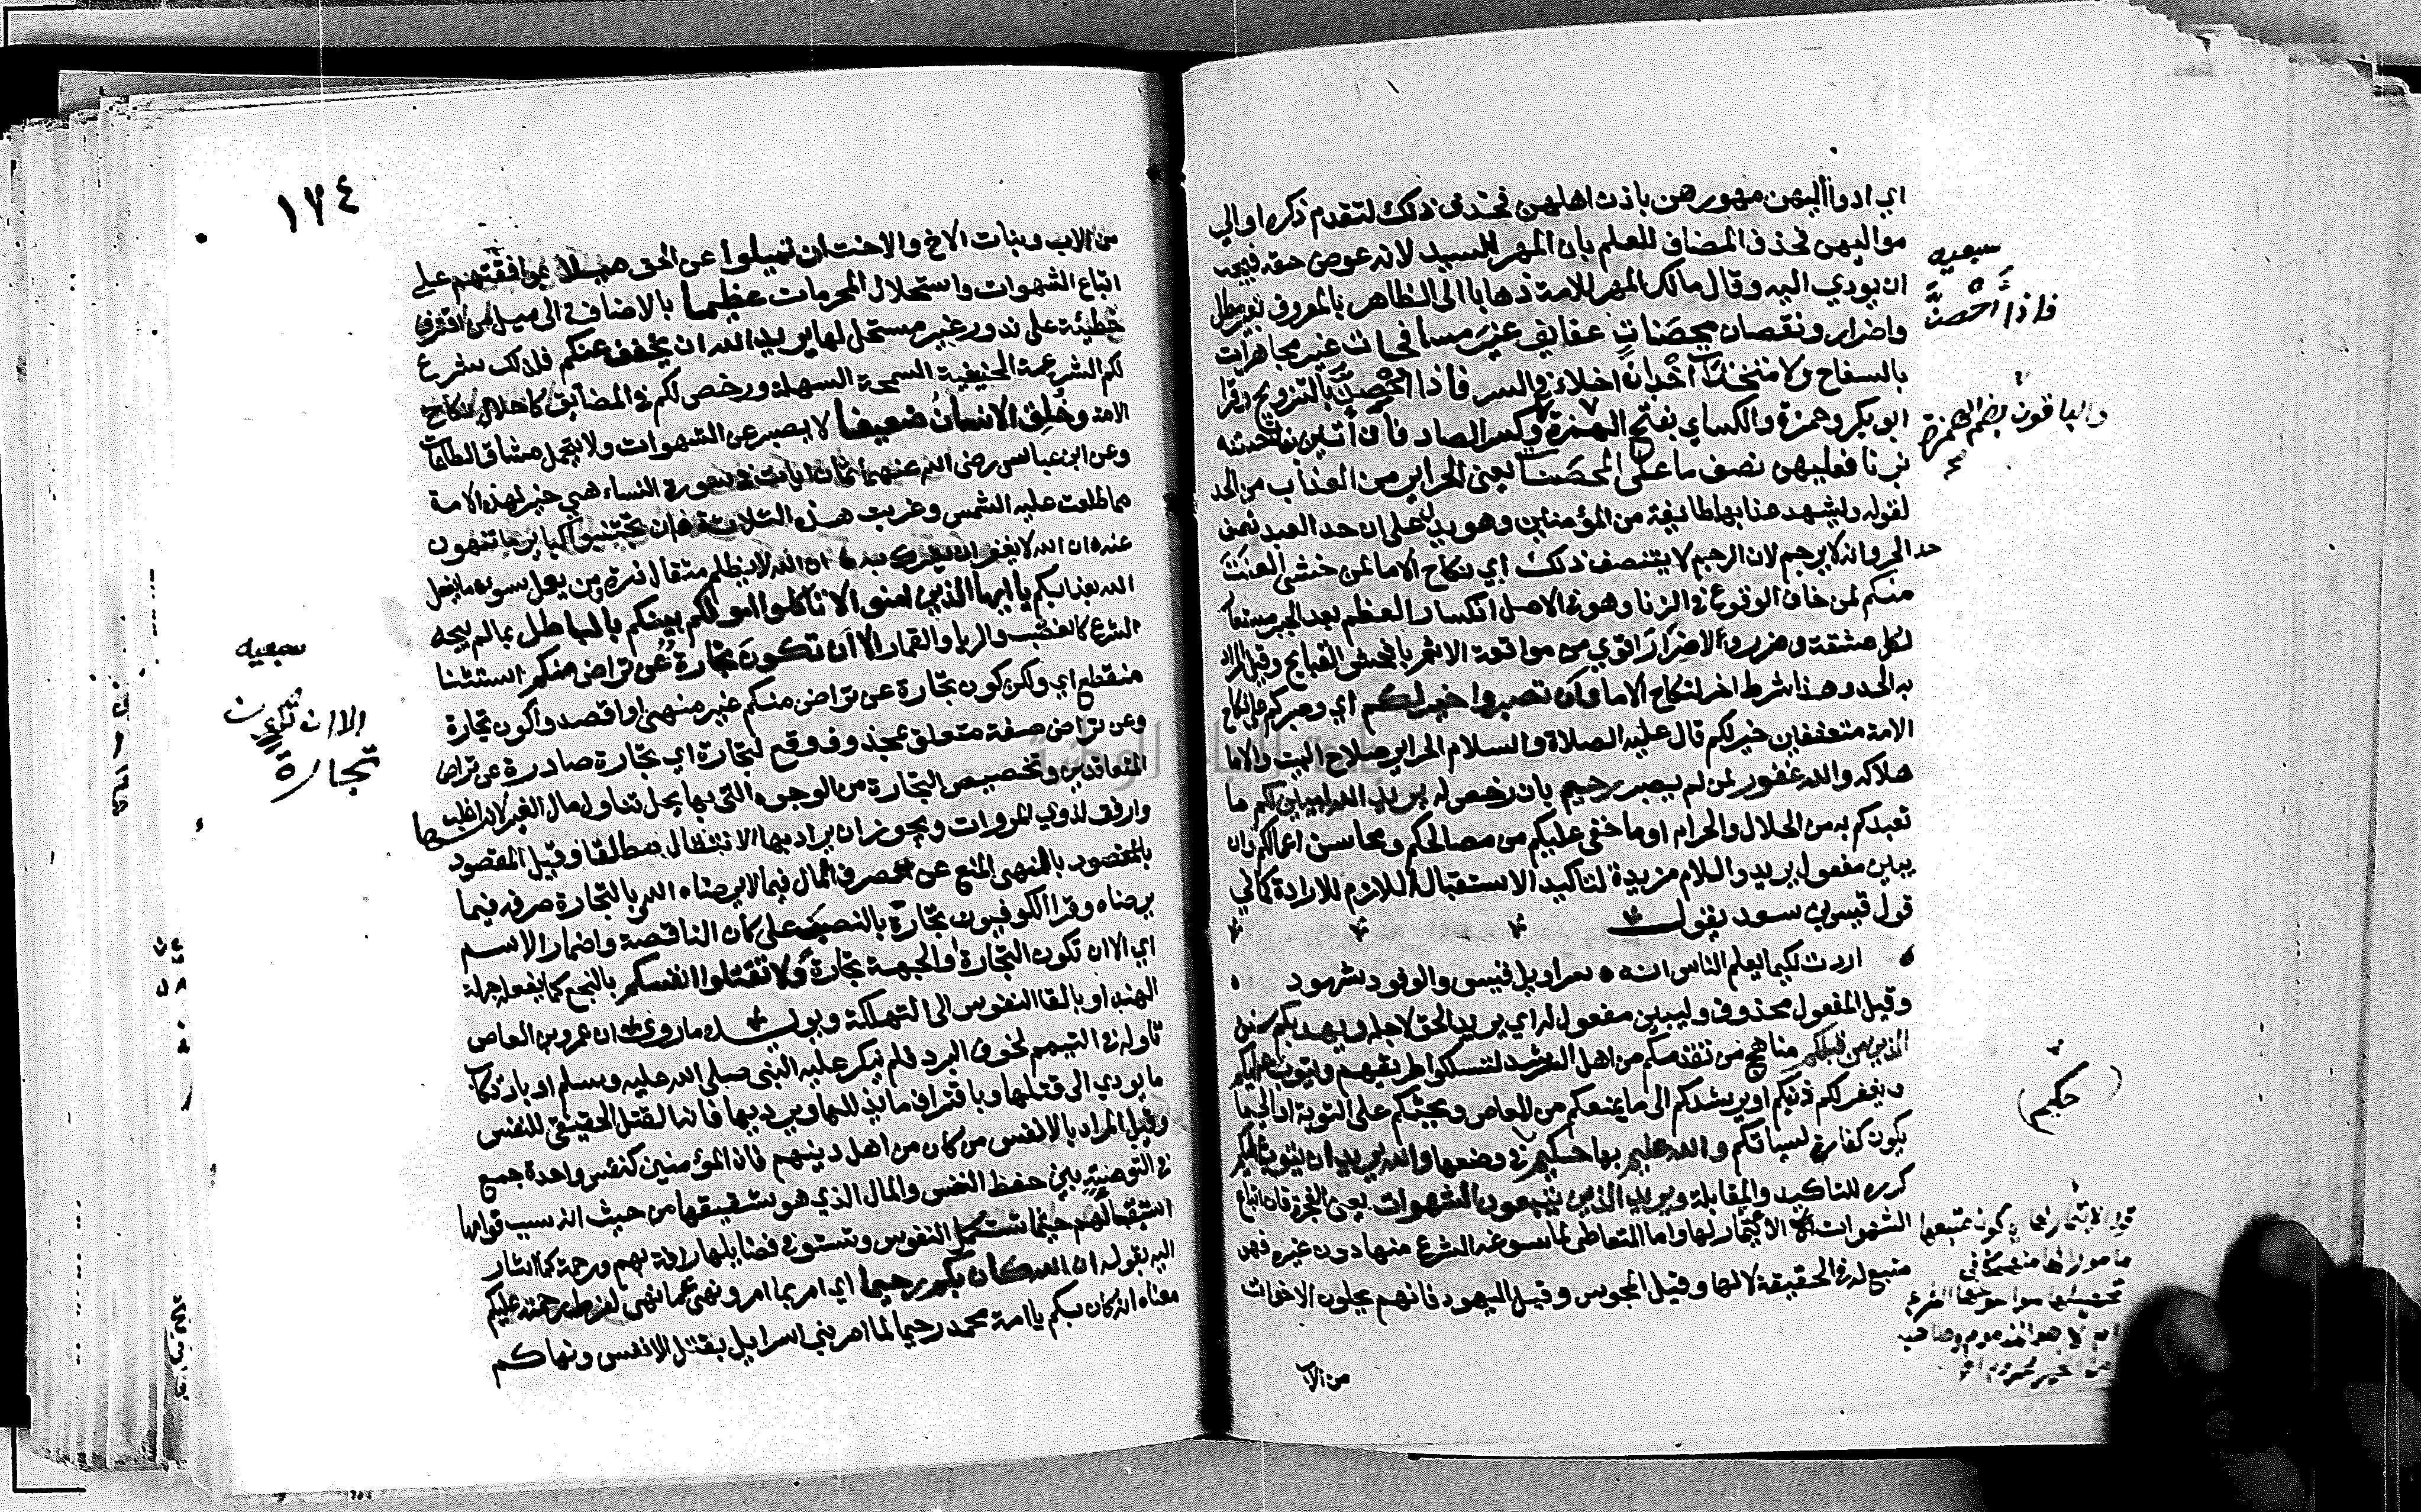 اي ادوا اليهن مهورهن باذن اهلهن فحذف ذلك لتقدم ذكره او الي
مواليهن فحذف المضاف للعلم بان المهر للسيد لانه عوض حقه فيجب
ان يودي اليه وقال مالك المهر للامة ذهابا الى الظاهر بالمعروف بغير مطل
واضرار ونقصان محصنات عفايف غير مسافحات غير مجاهرات
بالسفاح ولا متخذات أخدان اخلاء في السر فاذا أحصن بالتزويج وقرا
ابو بكر وحمزة والكساي بفتح الهمزة وكسر الصاد فان أتين بفاحشة
بزنا فعليهن نصف ما على المحصنات يعني الحراير من العذاب من الحد
لقوله وليشهد عذابهما طايفة من المؤمنين وهو يدل على ان حد العبد نصف
حد الحر وانه لا يرجم لان الرجم لا يتنصف ذلك اي نكاح الاما لمن خشي العنت
منكم لمن خاف الوقوع في الزنا وهو في الاصل انكسار العظم بعد الجبر مستعار
لكل مشقة وضرر ولا ضرر اقوي من مواقعة الاثم بافحش القبايح وقيل المراد
به الحد وهذا شرط اخر لنكاح الاما وأن تصبروا خير لكم اي وصبركم عن نكاح
الامة متعففين خير لكم قال عليه الصلاة والسلام الحراير صلاح البيت والاما
هلاكه والله غفور لمن لم يصبر رحيم بان رخص له يريد الله ليبين لكم ما
تعبدكم به من الحلال والحرام او ما خفي عليكم من مصالحكم ومحاسن اعمالكم وان
يبين مفعول يريد واللام مزيدة لتاكيد الاستقبال اللازم للارادة كما في
قول قيس بن سعد يقول
اردت لكيما يعلم الناس انه ه سراويل قيس والوفود شهود
وقيل المفعول محذوف وليبين مفعول له اي يريد الحق لاجله ويهديكم سنن
الذين من قبلكم مناهج من تقدمكم من اهل الرشد لتسلكوا طريقهم ويتوب عليكم
ويغفر لكم ذنوبكم او يرشدكم الى ما يمنعكم من المعاصي ويحثكم على التوبة او الى ما
يكون كفارة لسياتكم والله عليم بها حكيم في وضعها والله يريد ان يتوب عليكم
كرره للتاكيد والمقابلة ويريد الذين يتبعون الشهوات يعني الفجرة فان اتباع
الشهوات الايتمار لها واما المتعاطي لما سوغه الشرع منها دون غيره فهو
متبع له في الحقيقة لا لها وقيل المجوس وقيل اليهود فانهم يحلون الاخوات
من الاب
سبعيه
فاذا أحصن
والباقون بضم الهمزة
حكيم
١٧٤
من الاب وبنات الاخ والاخت ان تميلوا عن الحق ميلا بموافقتهم على
اتباع الشهوات واستحلال المحرمات عظيما بالاضافة الى ميل من اقترف
خطيئة على ندور غير مستحل لها يريد الله ان يخفف عنكم فلذلك شرع
لكم الشرعة الحنيفية السمحة السهلة ورخص لكم في المضايق كاحلال نكاح
الامة وخلق الانسان ضعيفا لا يصبر عن الشهوات ولا يتحمل مشاق الطاعات
وعن ابن عباس رضي الله عنهما ثمان ايات في سورة النساء هي خير لهذه الامة
مما طلعت عليه الشمس وغربت هذه الثلاثة وان تجتنبوا كباير ما تنهون
عنه ان الله لا يغفر ان يشرك به ان الله لا يظلم مثقال ذرة ومن يعمل سوءا ما يفعل
الله بعذابكم يا ايها الذين امنوا لا تاكلوا اموالكم بينكم بالباطل بما لم يبحه
الشرع كالغصب والربا والقمار الا ان تكون تجارة عن تراض منكم استثنا
منقطع اي ولكن كون تجارة عن تراض منكم غير منهي او اقصدوا كون تجارة
وعن تراض صفة متعلق بمحذوف وقع لتجارة اي تجارة صادرة عن تراض
المتعاقدين وتخصيص التجارة من الوجوه التي بها يحل تناول مال الغير لانها اغلب
وارفق لذوي المروات ويجوز ان يراد بها الانتقال مطلقا وقيل المقصود
بالمقصود بالنهي المنع عن صرف المال فيما لا يرضاه الله وبالتجارة صرفه فيما
يرضاه وقرا الكوفيون تجارة بالنصب على كان الناقصة واضمار الاسم
اي الا ان تكون التجارة او الجهة تجارة ولا تقتلوا انفسكم بالبخع كما يفعله جهلة
الهند او بالقا النفوس الى التهلكة ويويده ما روي ان عمرو بن العاص
تاوله في التيمم لخوف البرد فلم ينكر عليه النبي صلى الله عليه وسلم او بارتكاب
ما يودي الى قتلها وباقتراف ما يذللها ويرديها فانه القتل الحقيقي للنفس
وقيل المراد بالانفس من كان من اهل دينهم فان المؤمنين كنفس واحدة جمع
في التوصية بين حفظ النفس والمال الذي هو شقيقها من حيث انه سبب قوامها
استبقا لهم حيثما تستكمل النفوس وتستوفي فضايلها رافة بهم ورحمة كما اشار
اليه بقوله ان الله كان بكم رحيما اي امر بما امر ونهى عما نهى لفرط رحمته عليكم
معناه انه كان بكم يا امة محمد رحيما لما امر بني اسراييل بقتل الانفس ونهاكم
سبعيه
الا ان تكون
تجارة